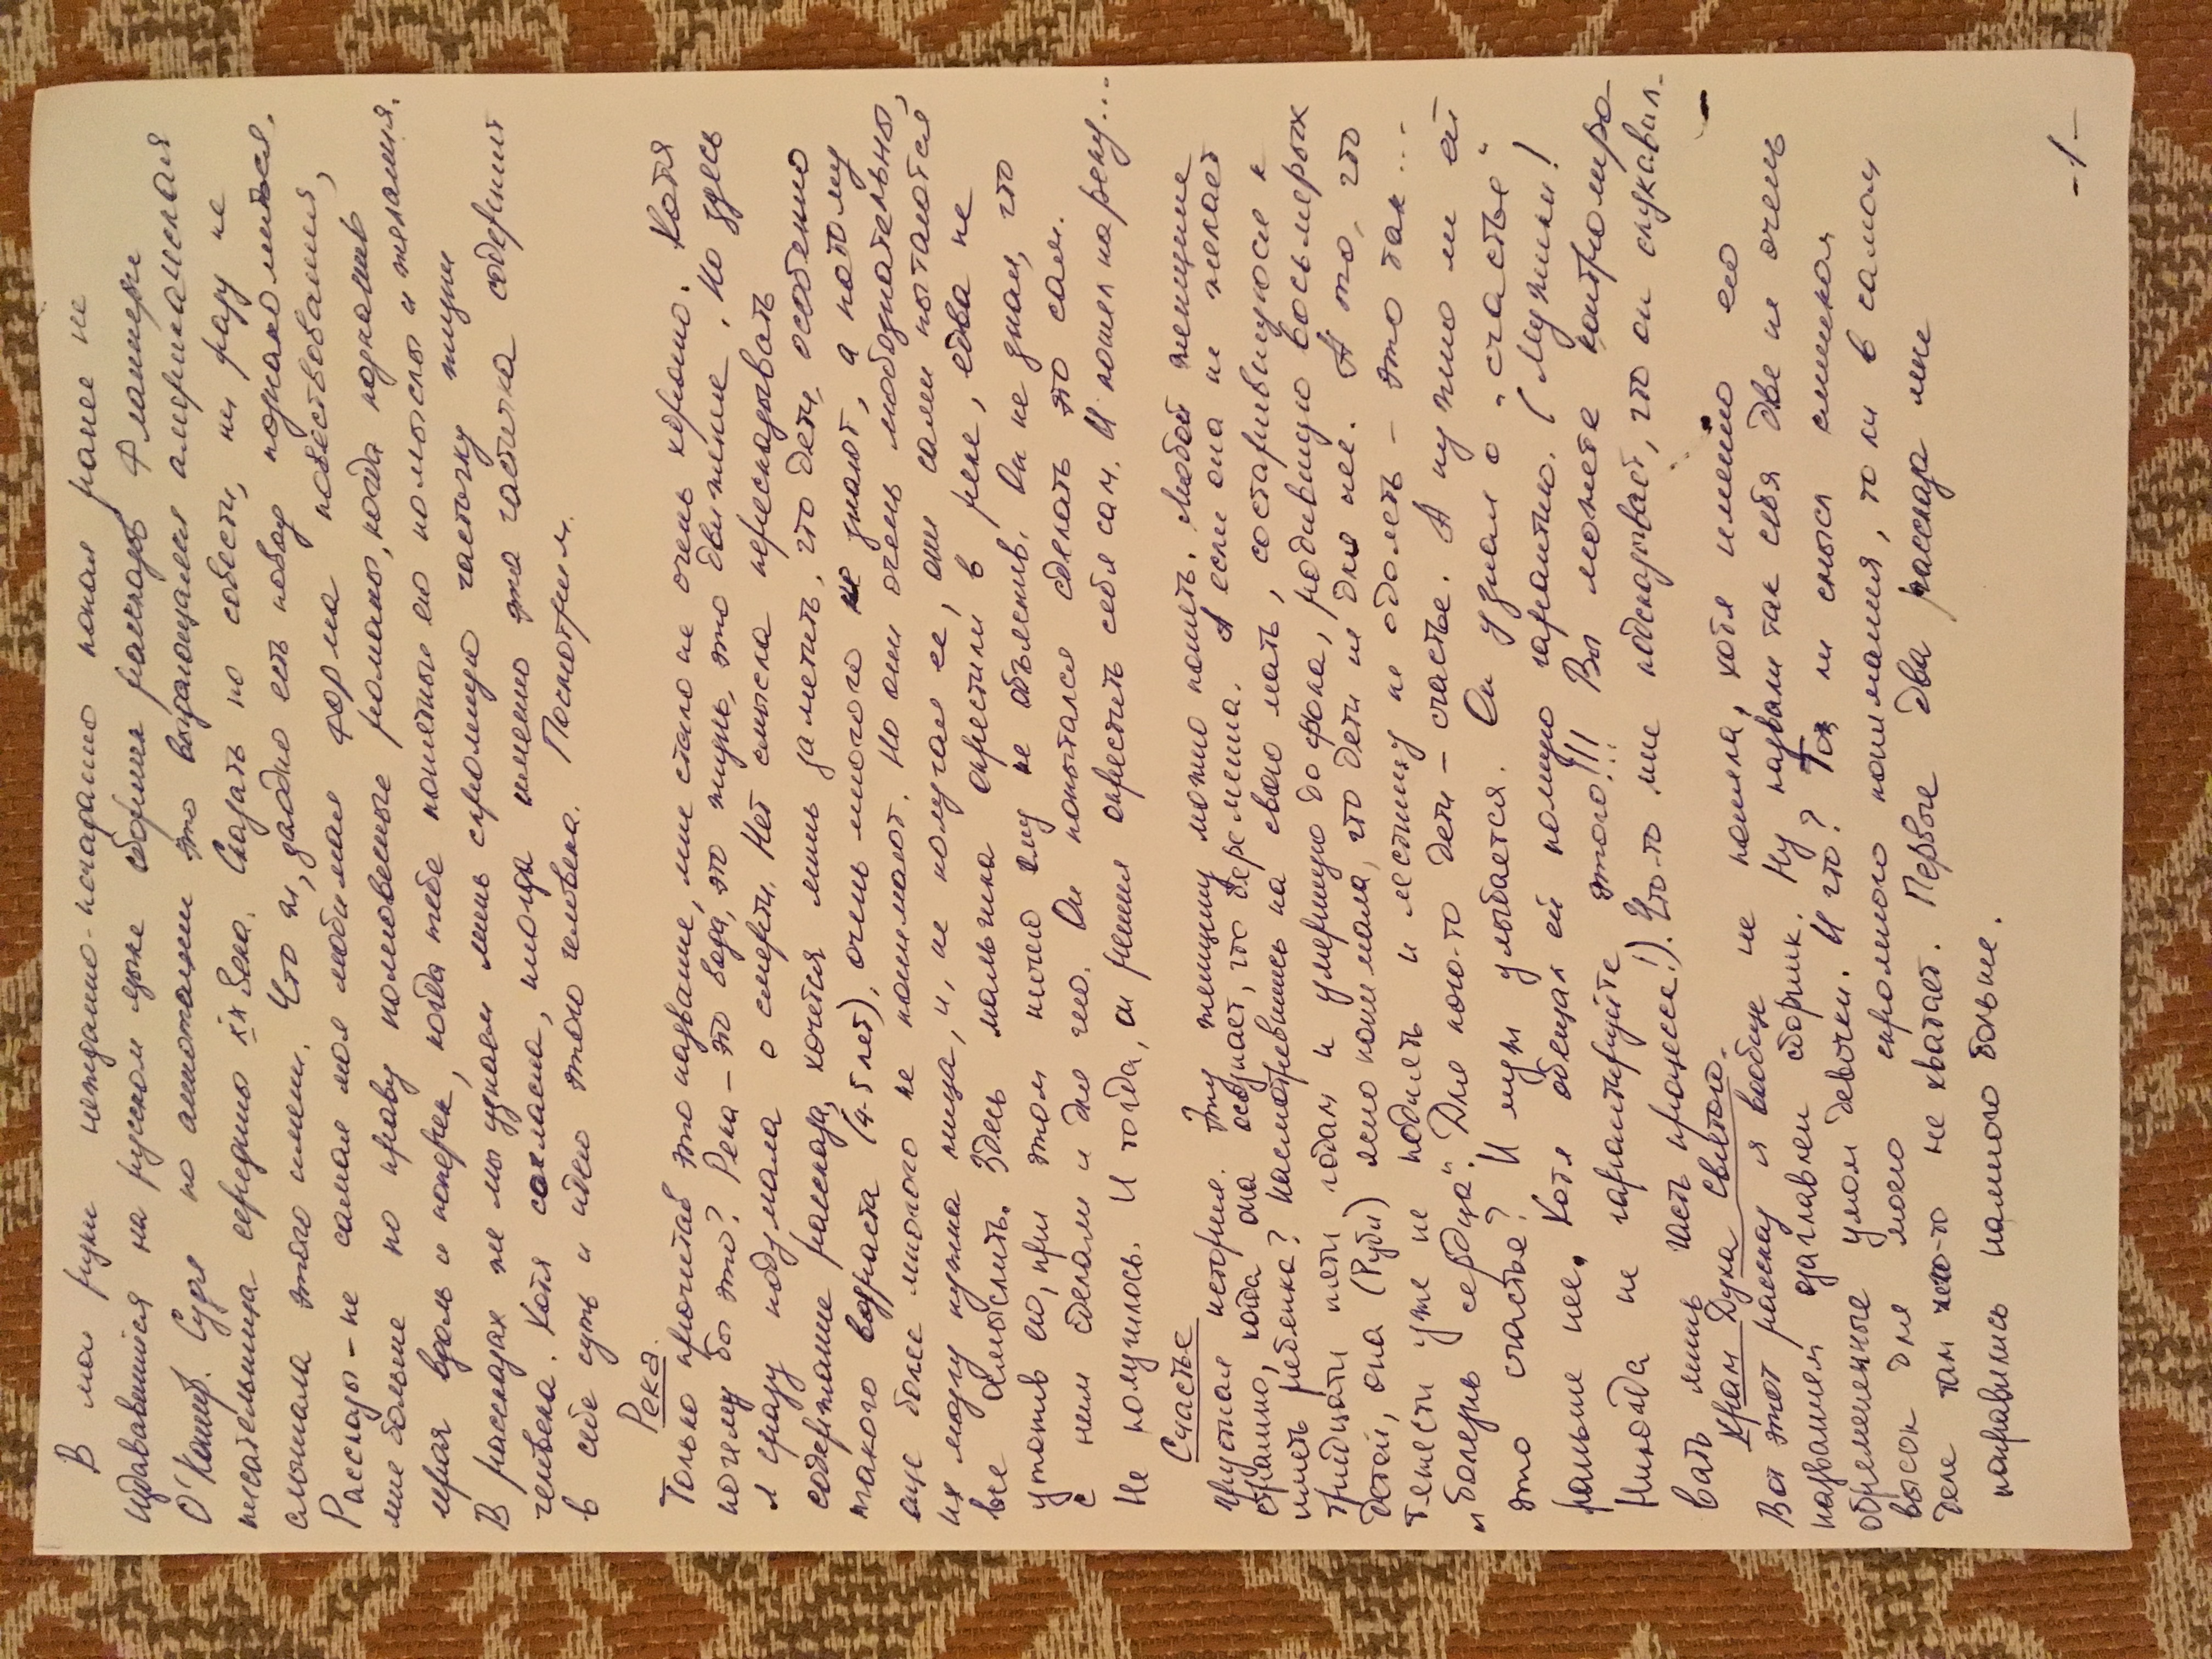 В мои руки нежданно-негаданно попал ранее не
издававшийся на русском языке сборник рассказов Фланнери
О'Коннор. Судя по аннотации это выдающаяся американская
писательница середины XX века. Сказать по совести, ни разу не
слышала этого имени. Что ж, заодно есть повод познакомиться.
Рассказы - не самая моя любимая форма повествования,
мне больше по нраву полновесные романы, когда познаешь
героя вдоль и поперек, когда тебе понятные его помыслы и желания.
В рассказах же мы узнаем лишь скромную частичку жизни
человека. Хотя согласна, иногда именно эта частичка содержит
в себе суть и идею этого человека. Посмотрим.
Река
Только прочитав это название, мне стало не очень хорошо. Хотя
почему бы это? Река - это вода, это жизнь, это движение. Но здесь
я сразу подумала о смерти. Нет смысла пересказывать
содержание рассказа, хочется лишь заметить, что дети, особенно
такого возраста (4-5 лет), очень многого не знают, а потому
еще более многого не понимают. Но они очень любознательны,
их мозгу нужна пища, и, не получая ее, они сами пытаются
все домыслить. Здесь мальчика окрестили в реке, едва не
утопив его, при этом ничего ему не объяснив. Он не знал, что
с ним сделали и для чего. Он попытался сделать это сам.
Не получилось. И тогда, он решил окрестить себя сам. И пошел на реку...
Счастье
Грустная история. Эту женщину можно понять. Любой женщине
страшно, когда она осознает, что беременна. А если она не желает
иметь ребенка? Насмотревшись на свою мать, состарившуюся к
тридцати пяти годам и умершую до срока, родившую восьмерых
детей, она (Руби) ясно понимала, что дети не для нее. А то, что
тяжести уже не поднять и лестницу не одолеть - это так...
"болезнь сердца". Для кого-то дети - счастье. А нужно ли ей
это счастье? И муж улыбается. Он узнал о "счастье"
раньше нее. Хотя обещал ей полную гарантию. (Мужики!
Никогда не гарантируйте этого!!! Вы можете контролиро-
вать лишь часть процесса!). Что-то мне подсказывает, что он слукавил.
Храм Духа Святого.
Вот этот рассказ я вообще не поняла, хотя именно его
названием озаглавлен сборник. Ну назвали так себя две не очень
обремененные умом девочки. И что? То ли смысл слишком
высок для моего скромного понимания, то ли в самом
деле там чего-то не хватает. Первые два рассказа мне
понравились намного больше.
-1-